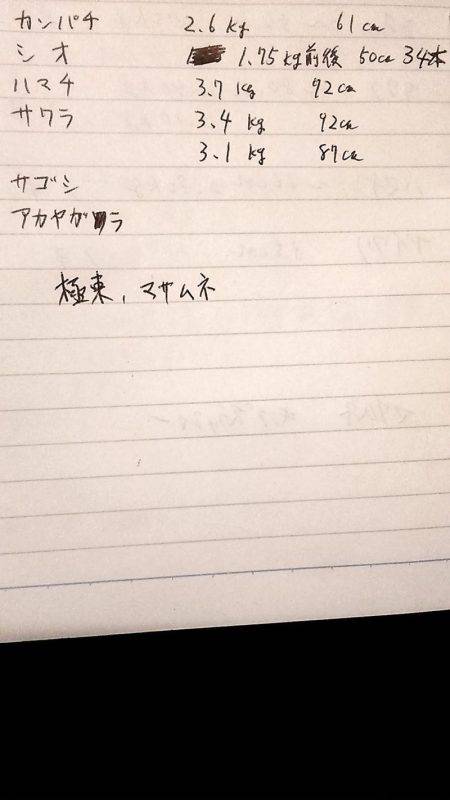 カンパチ 2.6kg 61cm
シオ 1.75kg前後 50cm 34本
ハマチ 3.7kg 92cm
サワラ 3.4kg 92cm
3.1kg 87cm
サゴシ
アカヤガラ
極東、マサムネ